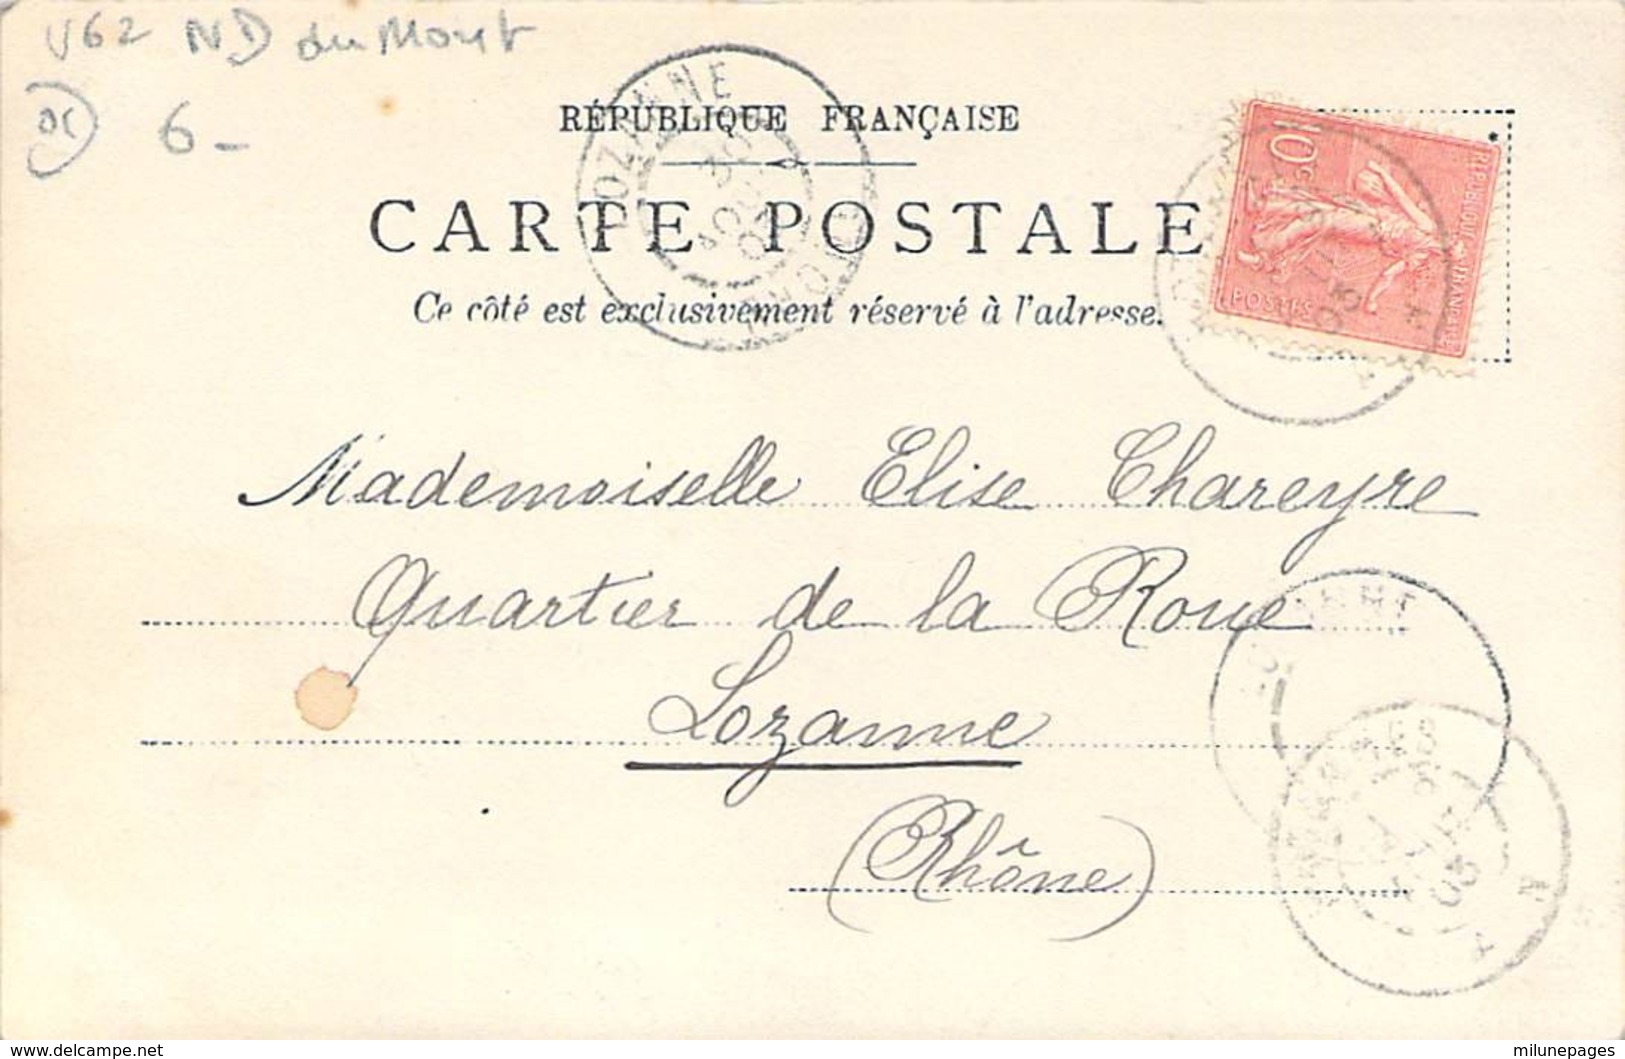 V62 ND du Mont
6 -
RÉPUBLIQUE FRANÇAISE
CARTE POSTALE
Ce côté est exclusivement réservé à l'adresse.
LOZANNE
RHONE
30
AOUT
10 c.
REPUBLIQUE FRANÇAISE
POSTES
Mademoiselle Elise Chareyre
Quartier de la Roue
Lozanne
(Rhône)
www.delcampe.net
milunepages